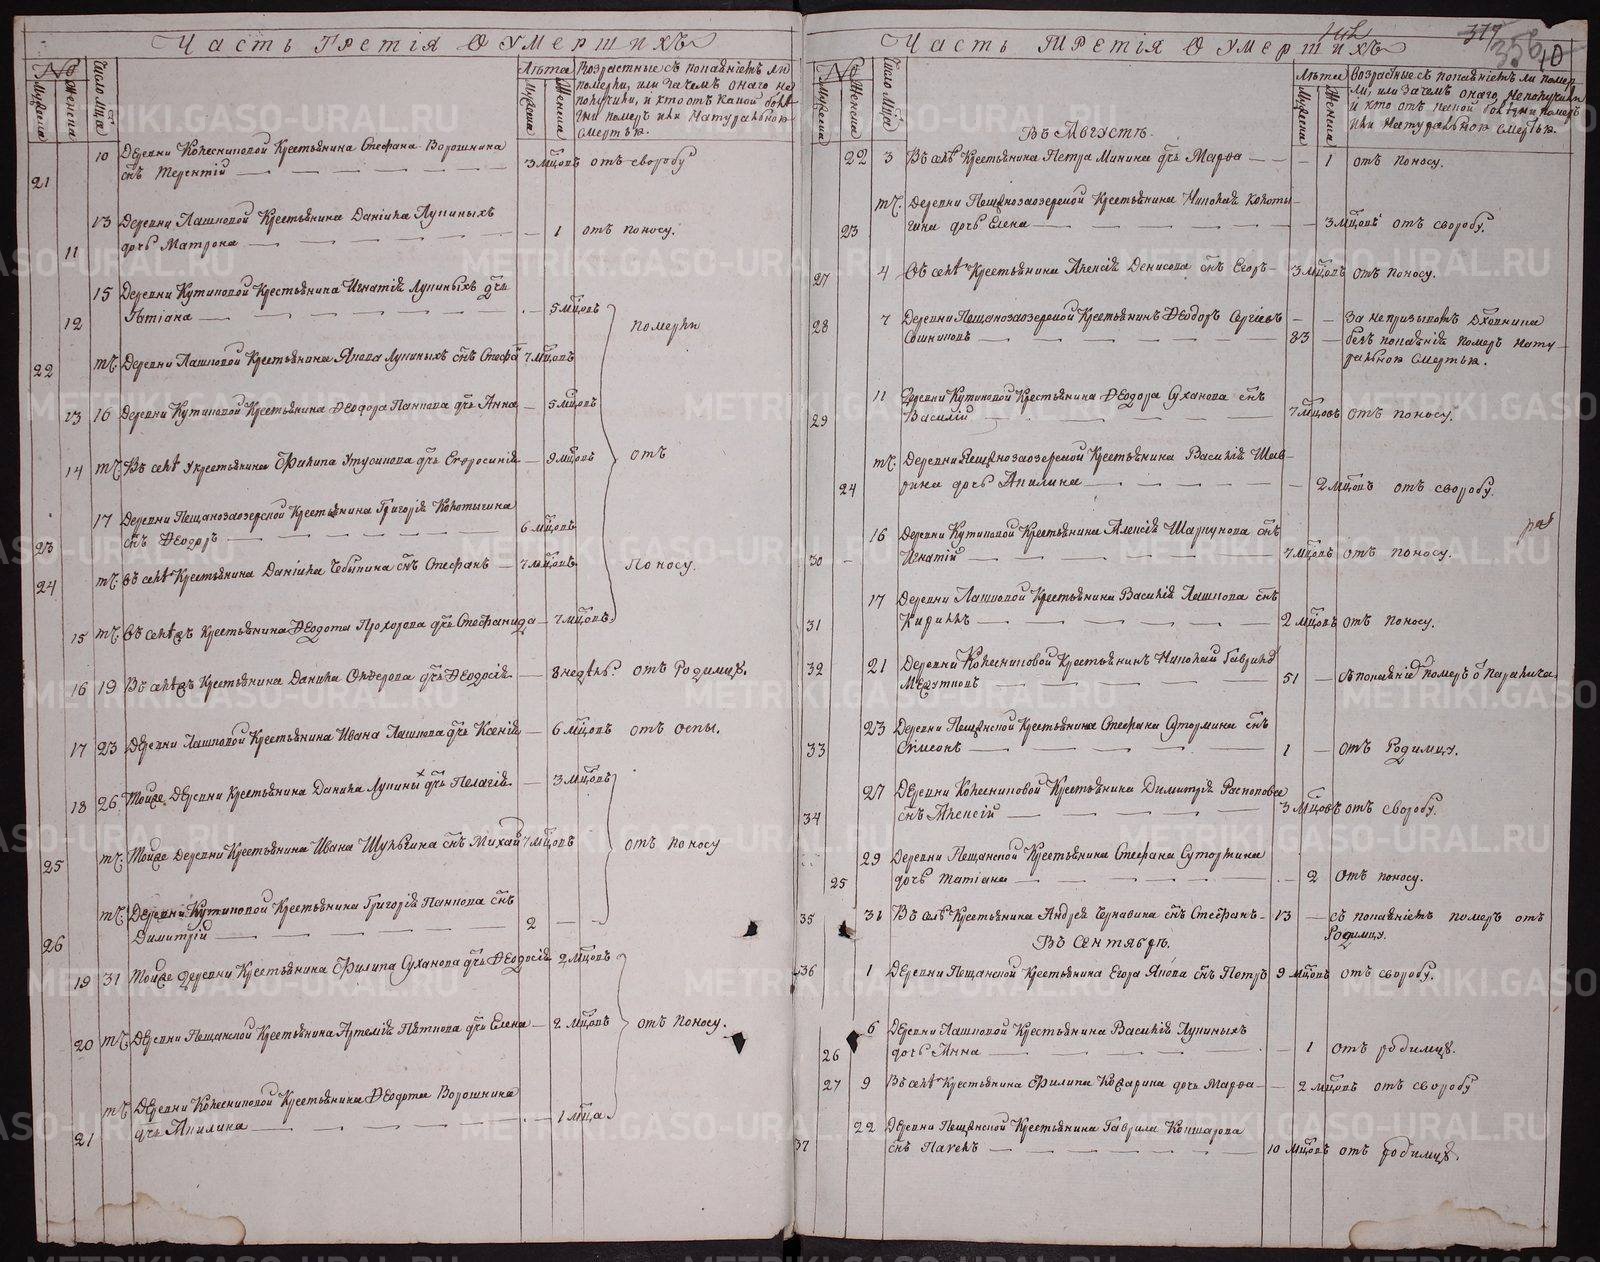 Часть третія о умершихъ
№
Мужеска
Женска
Число мца
Лѣта
Мужеска
Женска
Возрастные съ покаяніемъ ли
померли, или зачемъ онаго не
получили, и кто отъ какой болѣ-
зни померъ или натуральною
смертью.
10 Деревни Колесниковой крестьянина Стефана Ворошнина
21 снъ Терентій 3 мцовъ отъ своробу
13 Деревни Лашковой крестьянина Даніила Лупиныхъ
11 дочь Матрона 1 отъ поносу.
15 Деревни Кутиковой крестьянина Игнатія Лупиныхъ дчь
12 Татіана 5 мцовъ
померли
22 тч. Деревни Лашковой крестьянина Якова Лупиныхъ снъ Стефа 7 мцовъ
13 16 Деревни Кутиковой крестьянина Ѳеодора Панкова дчь Анна 5 мцовъ
14 тч. Въ селѣ крестьянина Филипа Утусикова дчь Евфросинія 9 мцовъ
отъ
17 Деревни Пещанозаозерской крестьянина Григорія Колотыгина
23 снъ Ѳеодоръ 6 мцовъ
24 тч. Въ селѣ крестьянина Даніила Чебыкина снъ Стефанъ 7 мцовъ
поносу.
15 тч. Въ селѣ крестьянина Ѳеодота Прохорова дчь Стефанида 7 мцовъ
16 19 Въ селѣ крестьянина Данила дчь Ѳеодосія 8 недѣль отъ родимцу.
17 23 Деревни Лашковой крестьянина Ивана Лашкова дчь Ксенія 6 мцовъ отъ оспы.
18 26 Тойже деревни крестьянина Данила Лупиныхъ дчь Пелагія 3 мцовъ
25 тч. Тойже деревни крестьянина Ивана Шульгина снъ Михаи 7 мцовъ
отъ поносу
тч. Деревни Кутиковой крестьянина Григорія Панкова снъ
26 Димитрій 2
19 31 Тойже деревни крестьянина Филипа Суханова дчь Ѳеодосія 2 мцовъ
20 тч. Деревни Пещанской крестьянина Артемія Пяткова дчь Елена 2 мцовъ
отъ поносу.
тч. Деревни Колесниковой крестьянина Ѳеодота Ворошнина
21 дчь Акилина 1 мца
Часть третія о умершихъ
317
356
10
№
Мужеска
Женска
Число мца
Лѣта
Мужеска
Женска
Возрастные съ покаяніемъ ли помер-
ли, или зачемъ онаго неполучили
и кто отъ какой болѣзни померъ
или натуральною смертью.
Въ Августѣ.
22 3 Въ селѣ крестьянина Петра Минина дчь Марѳа 1 отъ поносу.
тч. Деревни Пещанозаозерской крестьянина Николая Колоты-
23 гина дочь Елена 3 мцовъ отъ своробу.
27 4 Въ селѣ крестьянина Алексія Денисова снъ Егоръ 3 мцовъ отъ поносу.
28 7 Деревни Пещанозаозерской крестьянинъ Ѳеодоръ Сергіевъ
Сошниковъ 83
За непризывомъ духовника
безъ покаянія померъ нату-
ральною смертью.
11 Деревни Кутиковой крестьянина Ѳеодора Суханова снъ
29 Василій 7 мцовъ отъ поносу.
тч. Деревни Пещанозаозерской крестьянина Василія Шав-
24 рина дочь Акилина 2 мцовъ отъ своробу.
16 Деревни Кутиковой крестьянина Алексія Шаркунова снъ
30 Игнатій 7 мцовъ отъ поносу.
17 Деревни Лашковой крестьянина Василія Лашкова снъ
31 Кириллъ 2 мцовъ отъ поносу.
32 21 Деревни Колесниковой крестьянинъ Николай Гавриловъ
51 съ покаяніемъ померъ о паралича
23 Деревни Пещанской крестьянина Стефана Сутормина снъ
33 Симеонъ 1 отъ родимцу.
27 Деревни Колесниковой крестьянина Димитрія Распопова
34 снъ Алексій 3 мцовъ отъ своробу.
29 Деревни Пещанской крестьянина Стефана Сутормина
25 дочь Татіана 2 отъ поносу.
35 31 Въ селѣ крестьянина Андрея Чернавина снъ Стефанъ 13 съ покаяніемъ померъ отъ
родимцу.
Въ Сентябрѣ.
36 1 Деревни Пещанской крестьянина Егора Якова снъ Петръ 9 мцовъ отъ своробу.
6 Деревни Лашковой крестьянина Василія Лупиныхъ
26 дочь Анна 1 отъ родимцу.
27 9 Въ селѣ крестьянина Филипа Кокарина дочь Марѳа 2 мцовъ отъ своробу
22 Деревни Пещанской крестьянина Гаврила Кокшарова
37 снъ Павелъ 10 мцовъ отъ родимцу.
METRIKI.GASO-URAL.RU